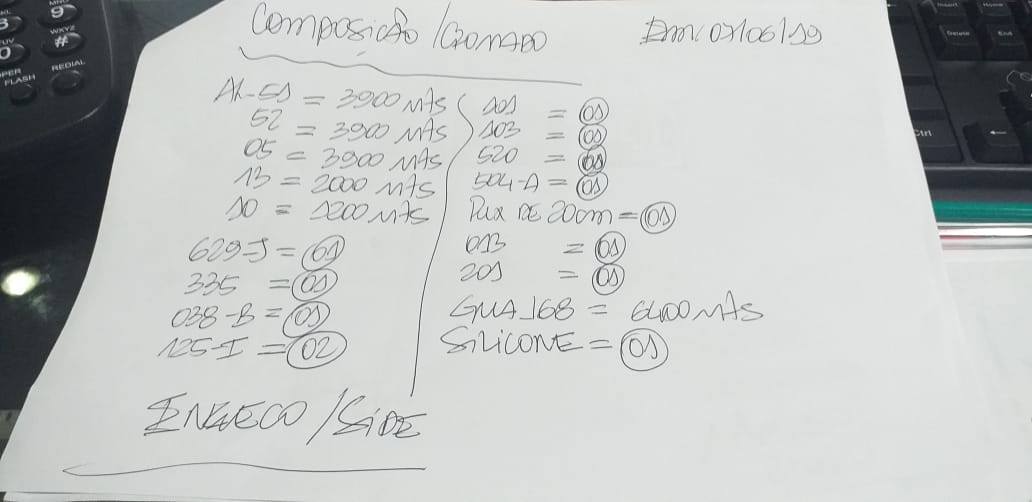 COMPOSIÇÃO / CROMADO
Em: 01/06/19
AL-51 = 3900 MTS
52 = 3900 MTS
05 = 3900 MTS
13 = 2000 MTS
10 = 1200 MTS
629-J = 01
335 = 01
038-B = 01
125-I = 02
101 = 01
103 = 01
520 = 01
504-A = 01
PUX DE 20cm = 01
013 = 01
201 = 01
GUA_168 = 6400 MTS
SILICONE = 01
/ SIDE
WXYZ
9
#
REDIAL
FLASH
Insert
Home
Delete
End
Ctrl